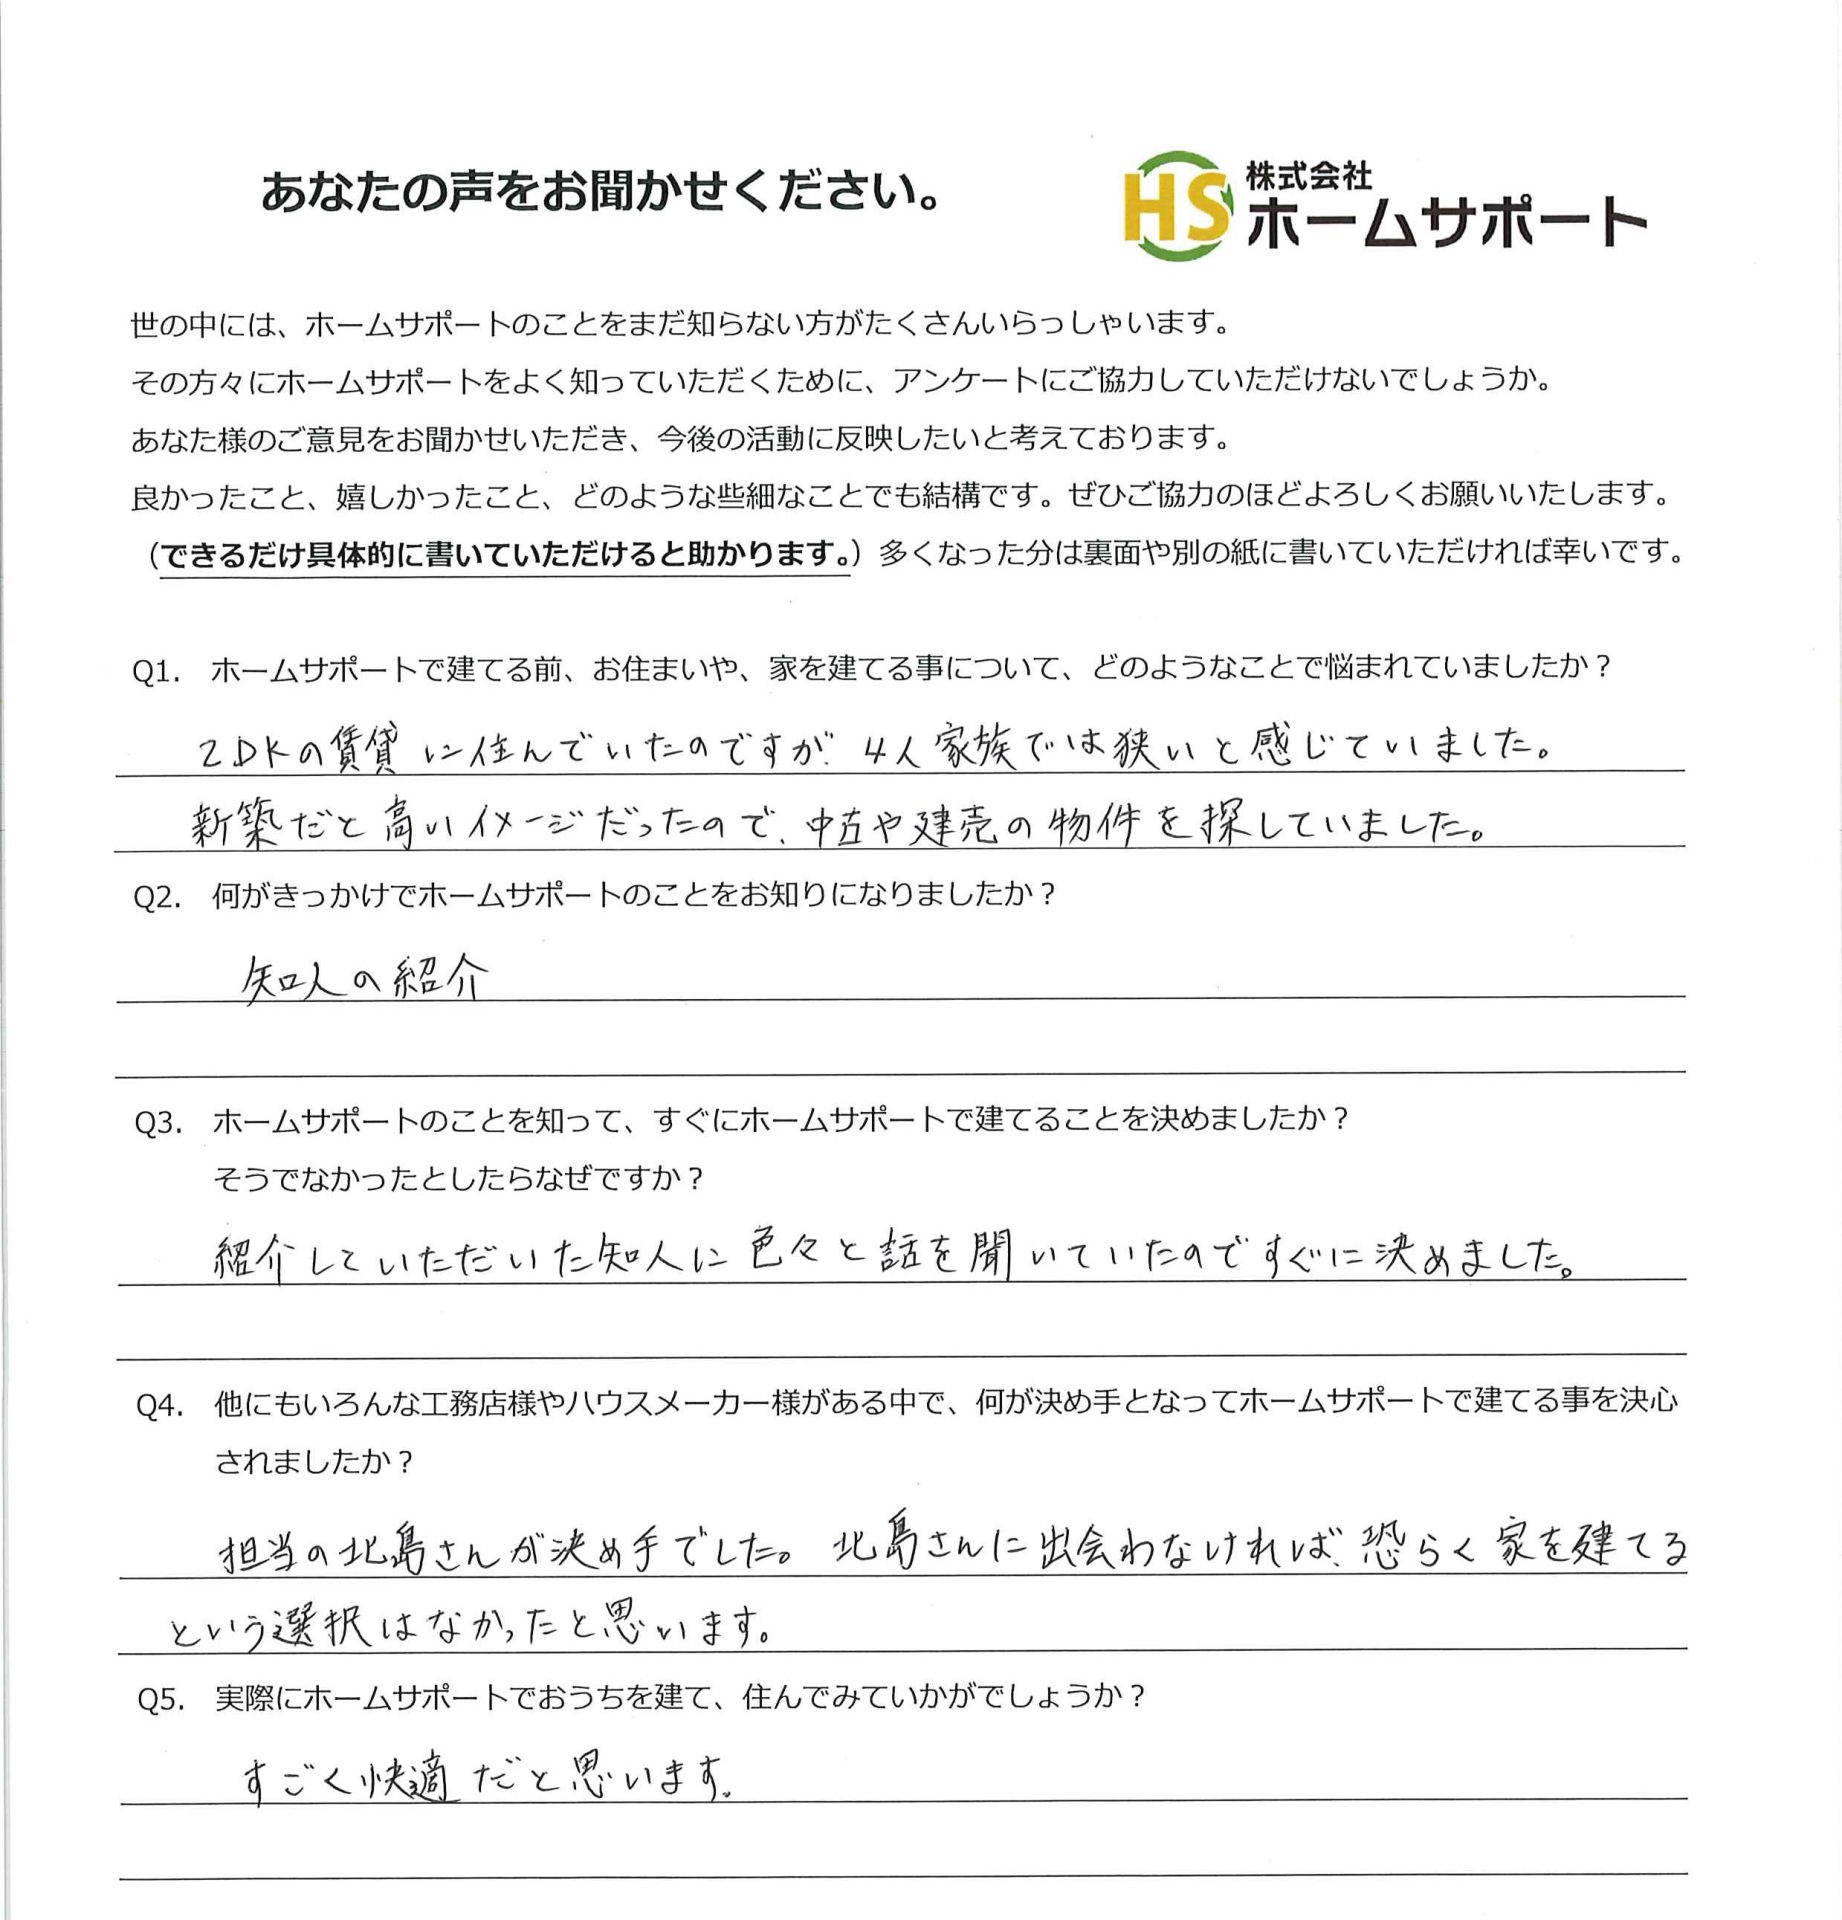 あなたの声をお聞かせください。
HS 株式会社
ホームサポート
世の中には、ホームサポートのことをまだ知らない方がたくさんいらっしゃいます。
その方々にホームサポートをよく知っていただくために、アンケートにご協力していただけないでしょうか。
あなた様のご意見をお聞かせいただき、今後の活動に反映したいと考えております。
良かったこと、嬉しかったこと、どのような些細なことでも結構です。ぜひご協力のほどよろしくお願いいたします。
（できるだけ具体的に書いていただけると助かります。）多くなった分は裏面や別の紙に書いていただければ幸いです。
Q1. ホームサポートで建てる前、お住まいや、家を建てる事について、どのようなことで悩まれていましたか？
2DKの賃貸に住んでいたのですが、4人家族では狭いと感じていました。
新築だと高いイメージだったので、中古や建売の物件を探していました。
Q2. 何がきっかけでホームサポートのことをお知りになりましたか？
知人の紹介
Q3. ホームサポートのことを知って、すぐにホームサポートで建てることを決めましたか？
そうでなかったとしたらなぜですか？
紹介していただいた知人に色々と話を聞いていたのですぐに決めました。
Q4. 他にもいろんな工務店様やハウスメーカー様がある中で、何が決め手となってホームサポートで建てる事を決心
されましたか？
担当の北島さんが決め手でした。北島さんに出会わなければ、恐らく家を建てる
という選択はなかったと思います。
Q5. 実際にホームサポートでおうちを建て、住んでみていかがでしょうか？
すごく快適だと思います。